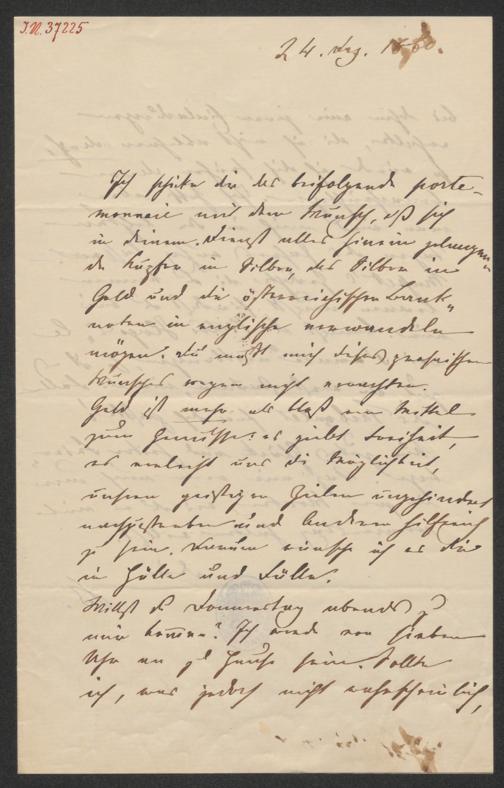 I.N. 37225
24. Dez. 1860.
Ich schicke dir das beifolgende porte-
monnaie mit dem Wunsch, daß sich
in deinem Dienst alles hinein gelangen-
de Kupfer in Silber, das Silber in
Gold und die österreichischen Bank-
noten in englische verwandeln
mögen. Du mußt mich dieses prosaischen
Wunsches wegen nicht verachten.
Geld ist mehr als bloß ein Mittel
zum Genusse: es giebt Freiheit,
es verleiht uns die Möglichkeit,
unsren geistigen Zielen ungehindert
nachzustreben und Anderen hilfreich
zu sein. Darum wünsche ich es Dir
in Hülle und Fülle.
Willst du Donnerstag abends zu
mir kommen? Ich werde von sieben
Uhr an zu Hause sein. Sollte
ich, was jedoch nicht wahrscheinlich,